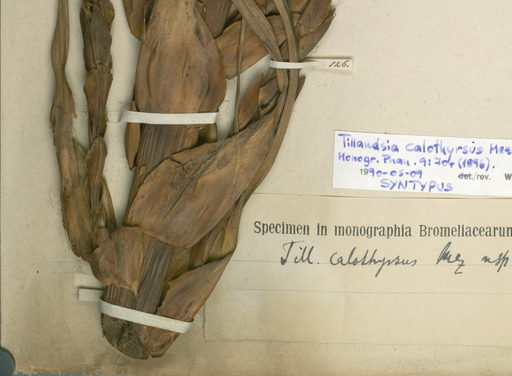 126.
Tillandsia calothyrsus Mez
Monogr. Phan. 9: 704 (1896).
1990-05-09 det./rev. W
SYNTYPUS
Specimen in monographia Bromeliacearum
Till. calothyrsus Mez nsp